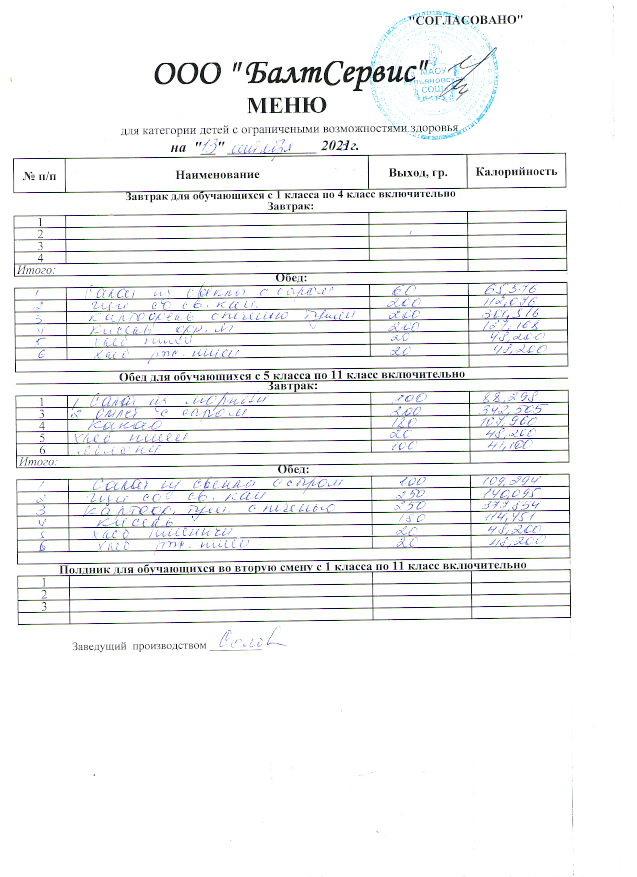 "СОГЛАСОВАНО"
ООО "БалтСервис"
МАОУ
СОШ
МЕНЮ
для категории детей с ограничеными возможностями здоровья
на "13" сентября 2021г.
№ п/п Наименование Выход, гр. Калорийность
Завтрак для обучающихся с 1 класса по 4 класс включительно
Завтрак:
1
2
3
4
Итого:
Обед:
1 Салат из свеклы с сыром 60 65,576
2 Щи со св. кап. 200 112,076
3 Картофель с печенью туш 200
4 Кисель 200
5 Хлеб пшен 20 48,200
6 Хлеб рж. пшен 20 48,200
Обед для обучающихся с 5 класса по 11 класс включительно
Завтрак:
1 1 Салат из моркови 100 88,298
3 2 Омлет с сыром 200 342,505
4 Какао 180 107,900
5 Хлеб пшен 20 48,200
6 100 41,100
Итого:
Обед:
1 Салат из свеклы с сыром 100 109,294
2 Щи со св. кап 250 140,095
3 Картоф. туш. с печенью 250 377,854
4 Кисель 180 114,451
5 Хлеб пшеничн 20 48,200
6 Хлеб рж. пшен 20 48,200
Полдник для обучающихся во вторую смену с 1 класса по 11 класс включительно
1
2
3
Заведущий производством